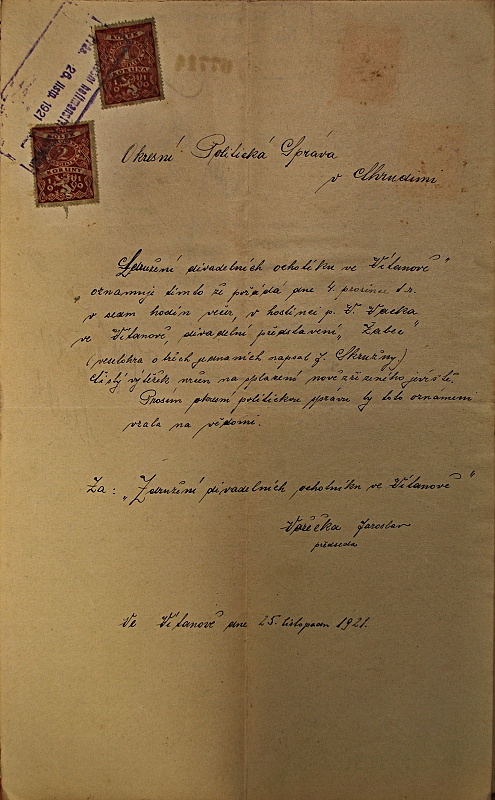 KOLEK
KORUNA
29. lis. 1921
KOLEK
2
KORUNY
Okresní Politická Správa
v Chrudimi
Sdružení divadelních ochotníku ve Vítanově"
oznamuje tímto že pořádá dne 4. prosince t.r.
v sedm hodin večer, v hostinci p. V. Vacka
ve Vítanově divadelní představení „Žabec"
(veselohra o třech jednáních napsal J. Skružný.)
čistý výtěžek určen na splacení nově zřízeného jeviště.
Prosím okresní politickou správu by toto oznámení
vzala na vědomí.
Za: „Združení divadelních ochotníku ve Vítanově"
Vařečka Jaroslav
předseda
Ve Vítanově dne 25. listopadu 1921.